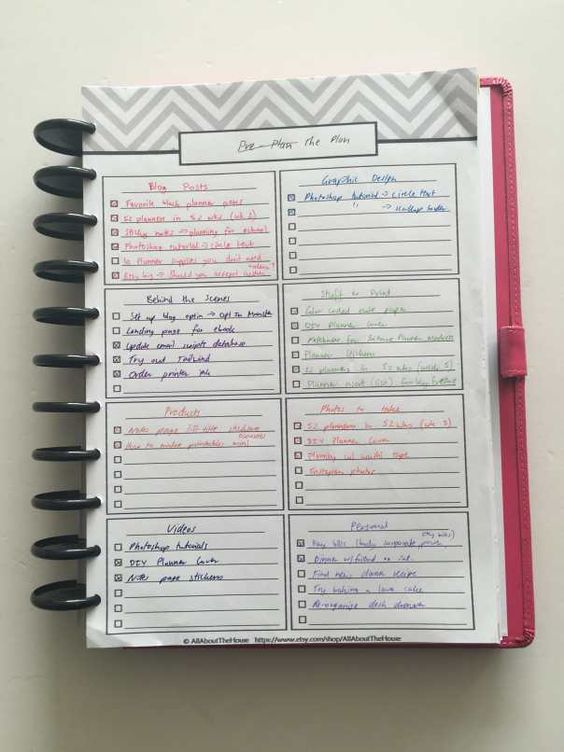 Pre-Plan the Plan
Blog Posts
Favorite black planner pens
52 planners in 52 wks (wk 2)
Sticky notes → planning for school
Photoshop tutorial → circle text
10 Planner supplies you don't need
Etsy biz → Should you accept custom
Graphic Design
Photoshop tutorial → circle text
" → scallop border
Behind the Scenes
Set up blog optin → Opt In Monster
Landing page for ebook
Update email scripts database
Try out Tailwind
Order printer ink
Stuff to Print
Color coded note paper
DIY Planner Cover
Planner Stickers
52 planners in 52 wks (week 3)
Planner insert
Products
Notes page
How to make printables mini
Photos to take
52 planners in 52 wks (wk 3)
DIY Planner Cover
Planning w/ washi tape
Instagram photos
Videos
Photoshop tutorials
DIY Planner Cover
Note page stickers
Personal
Pay bills
Dinner w/ friend on Sat
Find new dinner recipe
Try baking a lava cake
Re-organize desk drawers
© AllAboutTheHouse https://www.etsy.com/shop/AllAboutTheHouse